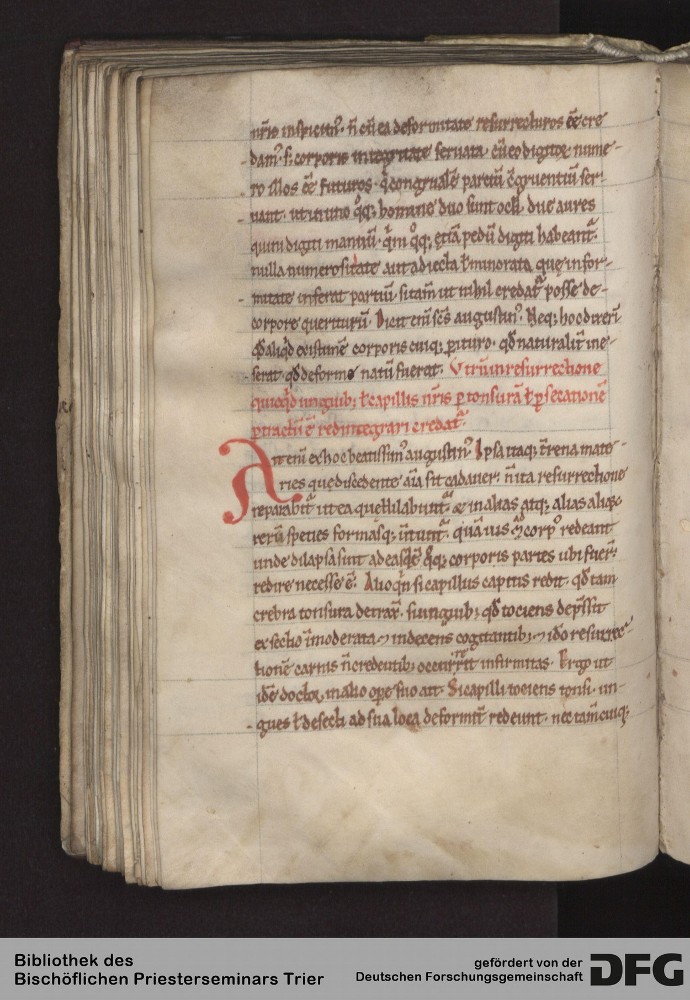 nr̄is inspicitur. n̄ cū ea deformitate resurrecturos eē cre
dam; s; corporis integritate seruata. cū eo digitoꝝ nume-
ro illos eē futuros. q̄ congrualē parciū c̄gruentiū ser-
uant. ut in uno qͦq; homine duo sunt oculi. due aures
quini digiti manuū. q̄m qͦq; etiā pedū digiti habeant̄.
nulla numerositate aut adiecta ł minorata que infor-
mitate inferat partiū. sitam̄ ut nihil credat̄ posse de-
corpore queriturū. Dicit enī sc̄s augustin᷒. Neq; hoc dixerī
qd̄ aliqd̄ existimē corporis cuiq; periturū. qd̄ naturalit̄ ine-
serat. qd̄ deforme natū fuerat. Vtrū in resurrectione
quicqd̄ unguib; ł capillis nr̄is p tonsurā ł p secationē
ptractū ē redintegrari credat̄.
Ait enī et hoc beatissim᷒ augustin᷒. Ipsa itaq; t̄rena mate-
ries que discedente aīa fit cadauer. n̄ ita resurrectione
reparabit̄ ut ea que dilabunt̄ & in alias atq; alias aliaꝝ
rerū species formasq; ūtunt̄. quāuis ad corp᷒ redeant
unde dilapsa sunt ad easdē qͦq; corporis partes ubi fuer̄
redire necesse ē. Alioqn̄ si capillus capitis redit. qd̄ tam
crebra tonsura detrax̄. si unguib; qd̄ tociens dep̄ssit
exsectio īmoderata ⁊ indecens cogitantib; ⁊ ido resurrec-
tionē carnis n̄ credentib; occurrit infirmitas. Ergo ut
idē doctor in alio ope suo ait. Si capilli tociens tonsi. un-
gues ł desecti ad sua loca deformit̄ redeunt. nec tam̄ cuiq;
Bibliothek des
Bischöflichen Priesterseminars Trier
gefördert von der
Deutschen Forschungsgemeinschaft
DFG